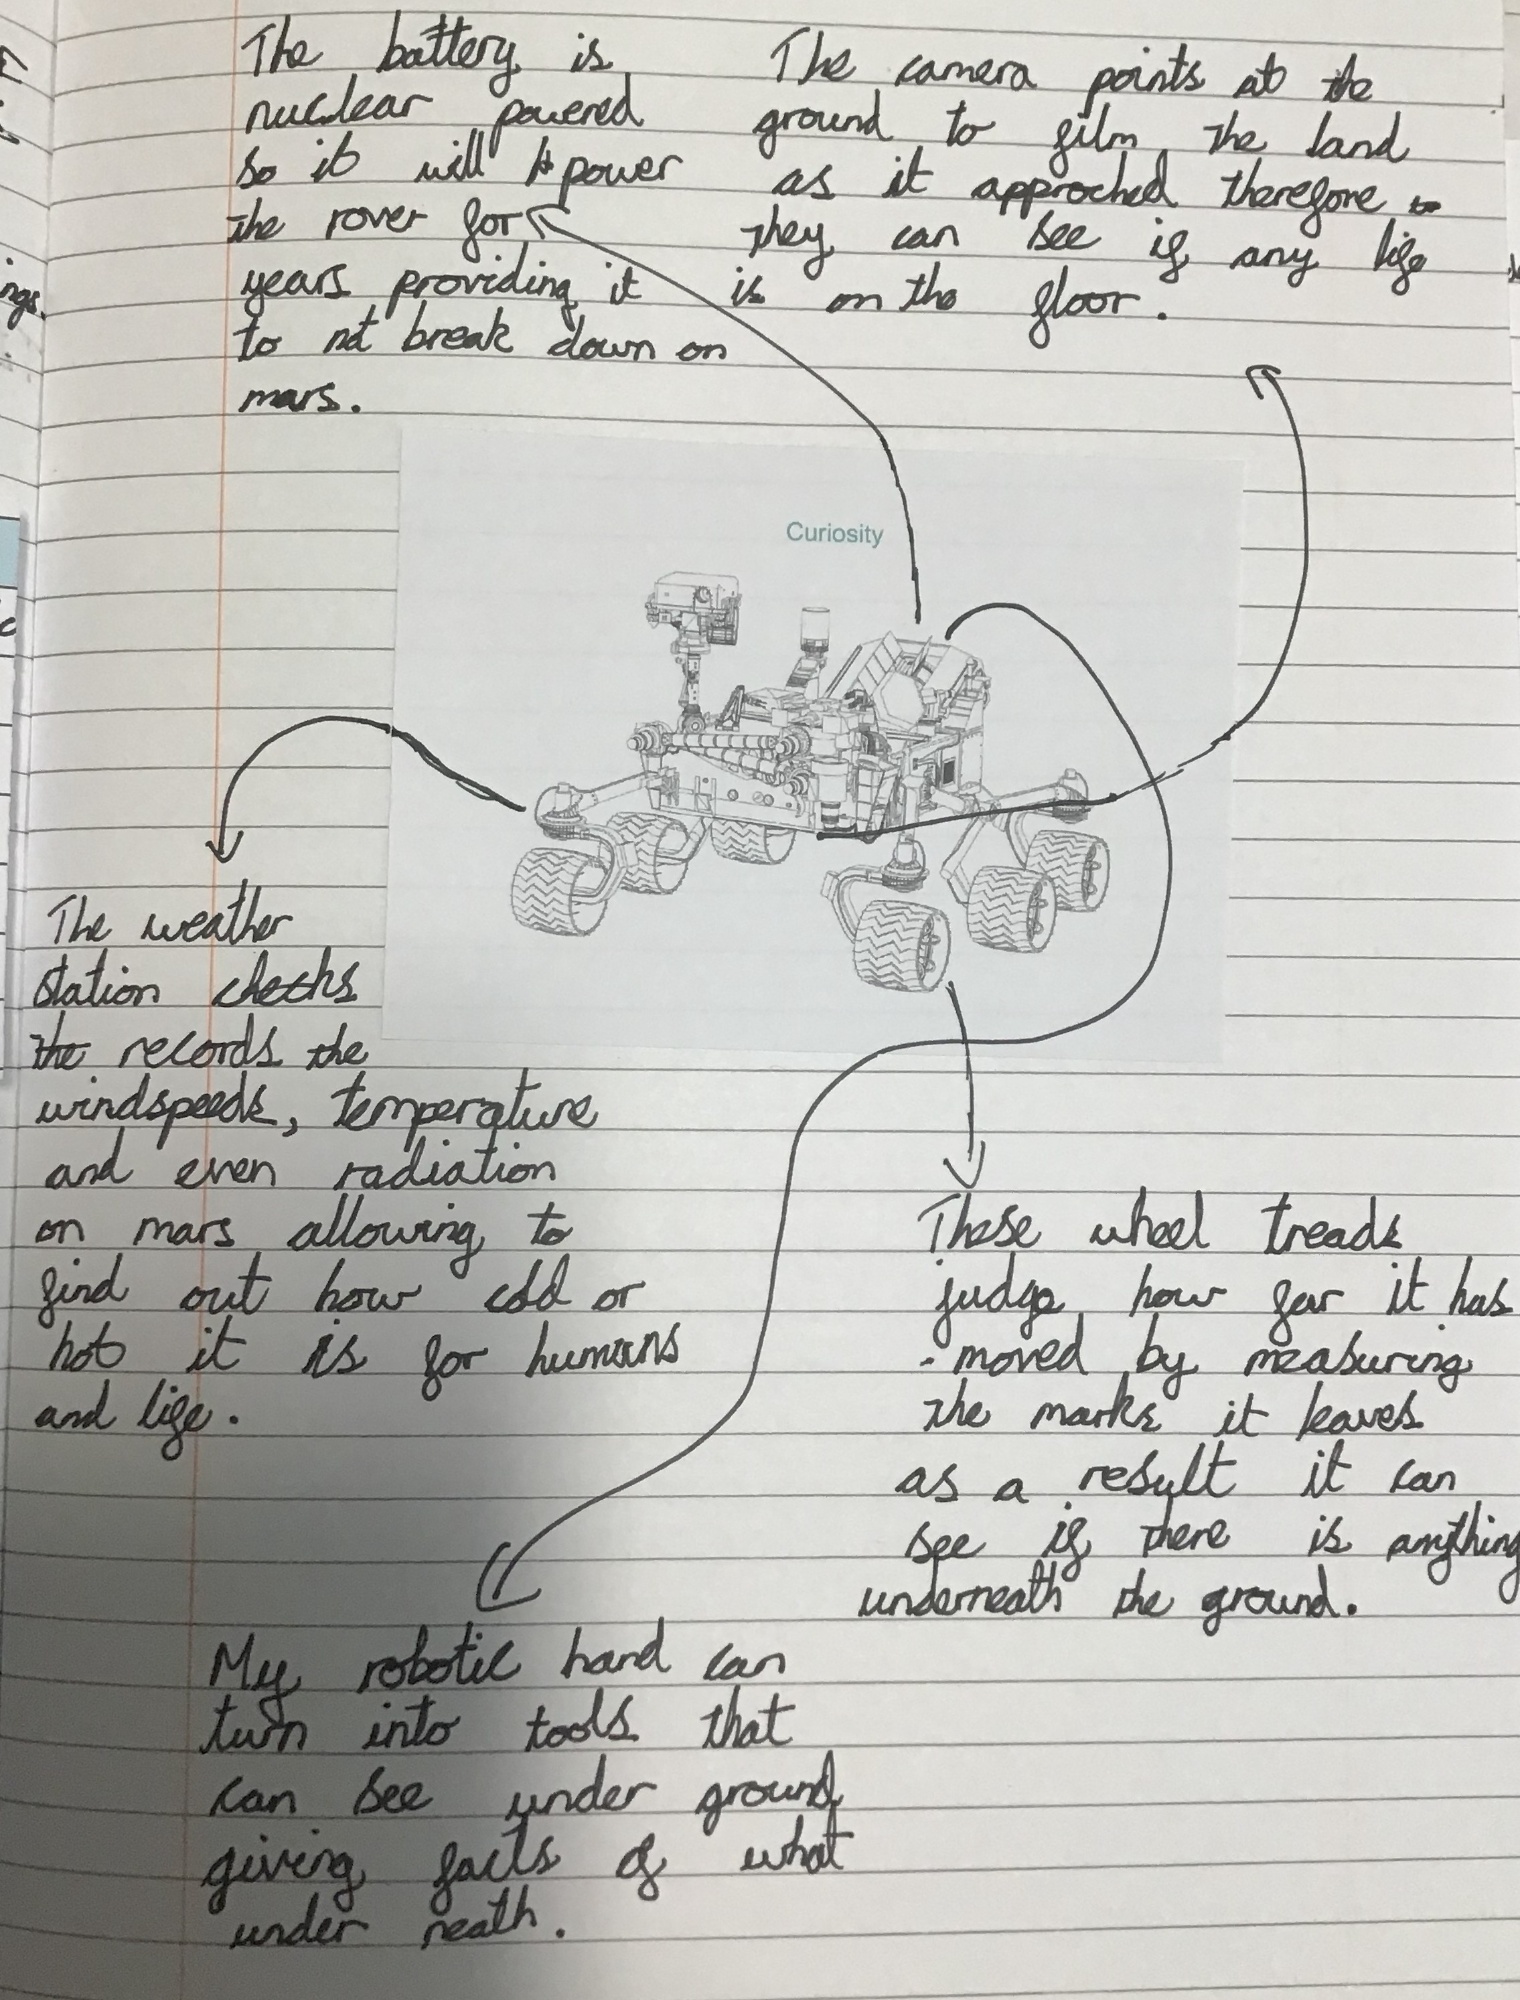 The battery is
nuclear powered
so it will power
the rover for
years providing it
to not break down on
mars.
The camera points at the
ground to film the land
as it approched therefore
they can see if any life
is on the floor.
Curiosity
The weather
station checks
the records the
windspeeds, temperature
and even radiation
on mars allowing to
find out how cold or
hot it is for humans
and life.
These wheel treads
judge how far it has
moved by measuring
the marks it leaves
as a result it can
see if there is anything
underneath the ground.
My robotic hand can
turn into tools that
can see under ground
giving facts of what
under neath.
ngs.